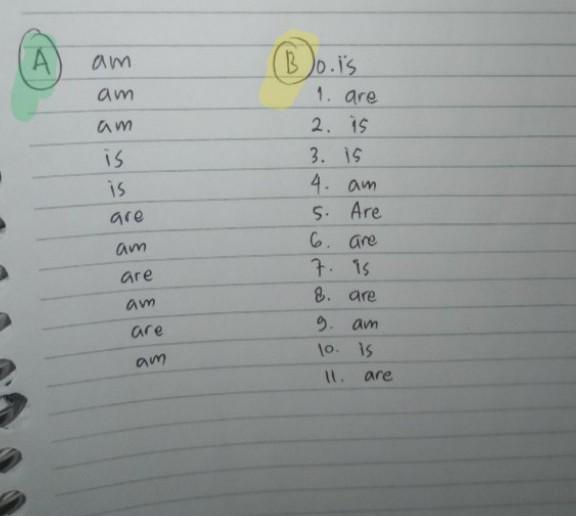 A
am
am
am
is
is
are
am
are
am
are
am
B
0. is
1. are
2. is
3. is
4. am
5. Are
6. are
7. is
8. are
9. am
10. is
11. are